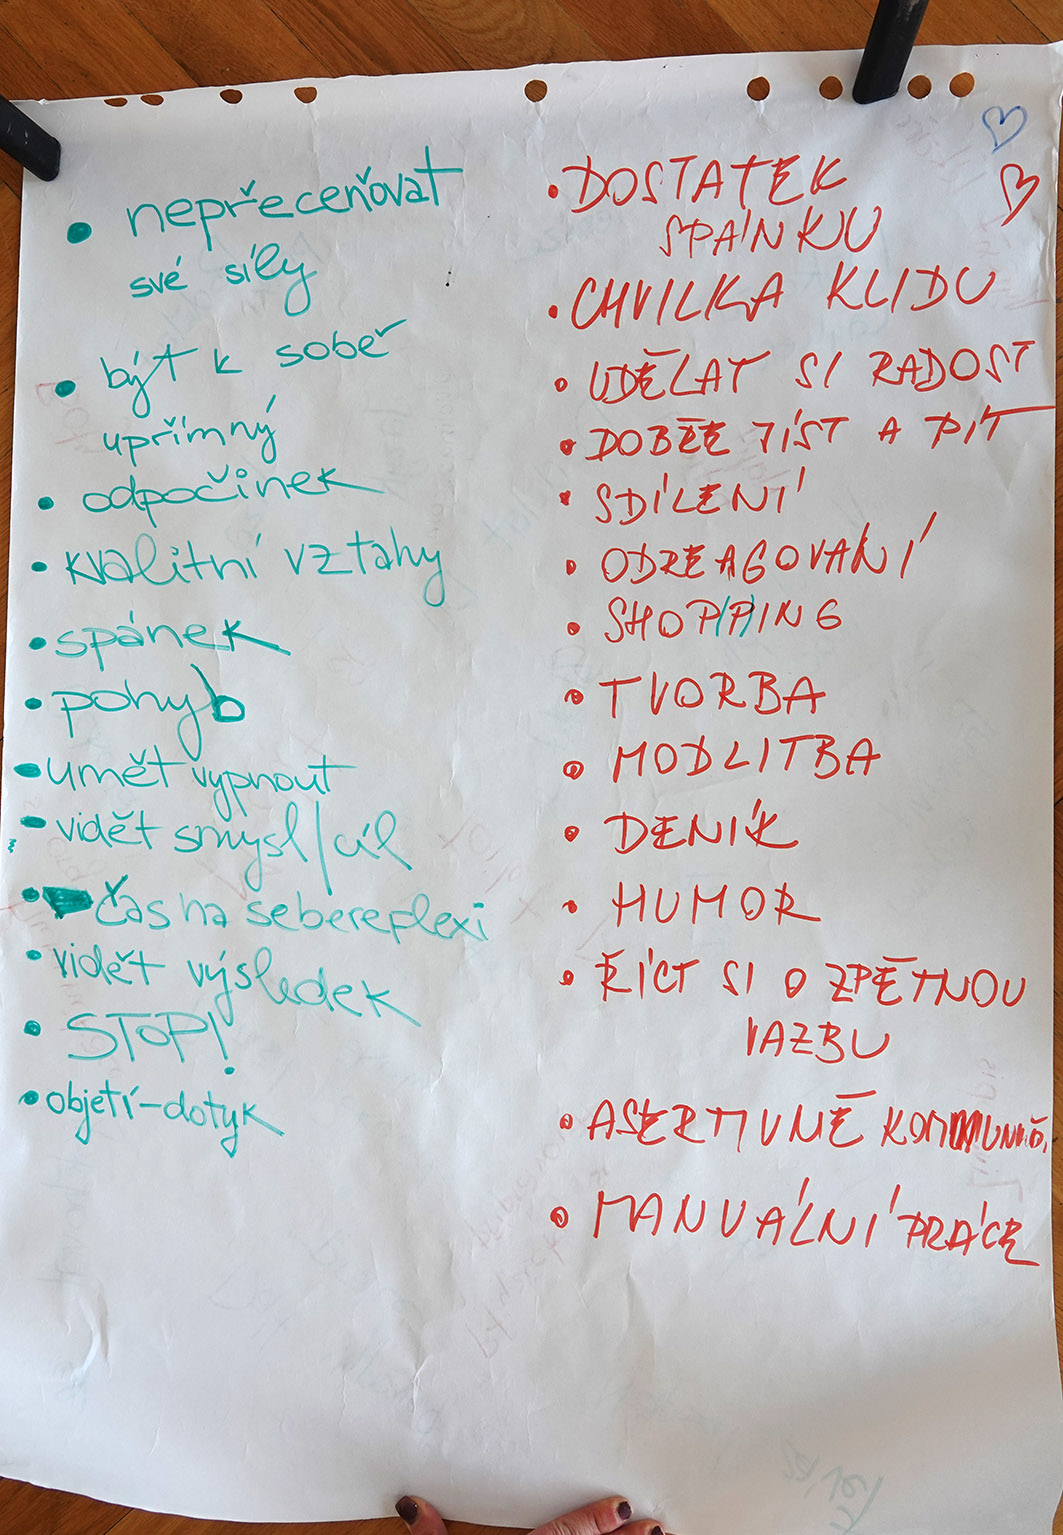 • nepřeceňovat
své síly
• být k sobě
upřímný
• odpočinek
• kvalitní vztahy
• spánek
• pohyb
• umět vypnout
• vidět smysl/cíl
• čas na sebereplexi
• vidět výsledek
• STOP!
• objetí-dotyk
• DOSTATEK
SPÁNKU
• CHVILKA KLIDU
• UDĚLAT SI RADOST
• DOBŘE JÍST A PÍT
• SDÍLENÍ
• ODREAGOVÁNÍ
• SHOP(P)ING
• TVORBA
• MODLITBA
• DENÍK
• HUMOR
• ŘÍCT SI O ZPĚTNOU
VAZBU
• ASERTIVNĚ
• MANUÁLNÍ PRÁCE